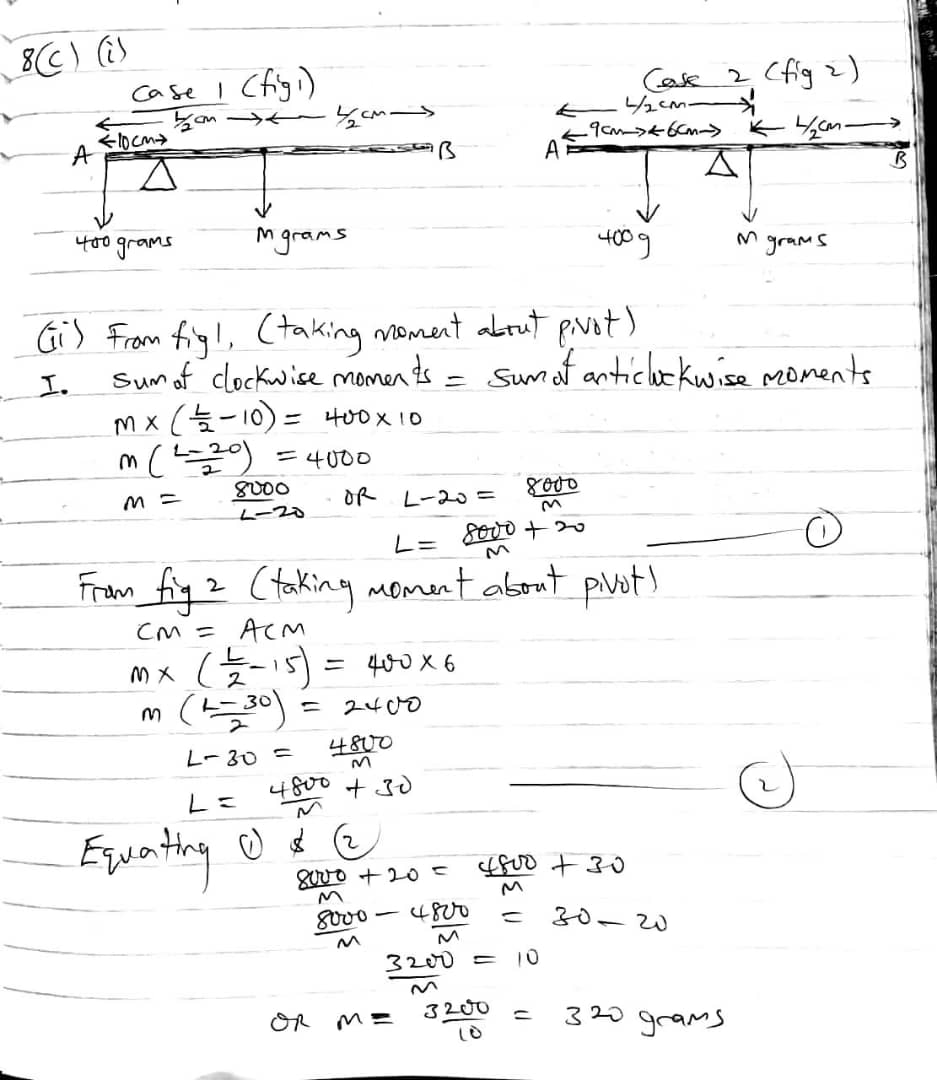 8(c) (i)
Case 1 (fig 1)
Case 2 (fig 2)
L/2 cm L/2 cm
10cm
A B
400 grams M grams
L/2 cm
9cm 6cm L/2 cm
A B
400g M grams
(ii) From fig 1, (taking moment about pivot)
I. Sum of clockwise moments = Sum of anticlockwise moments
M x (L/2 - 10) = 400 x 10
M (L-20/2) = 4000
M = 8000/L-20 OR L-20 = 8000/M
L = 8000/M + 20 ①
From fig 2 (taking moment about pivot)
CM = ACM
M x (L/2 - 15) = 400 x 6
M (L-30/2) = 2400
L-30 = 4800/M
L = 4800/M + 30 ②
Equating ① & ②
8000/M + 20 = 4800/M + 30
8000/M - 4800/M = 30 - 20
3200/M = 10
OR M = 3200/10 = 320 grams